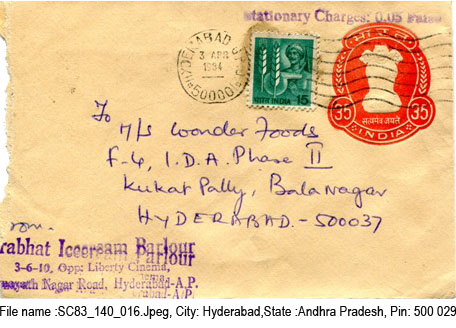 Stationary Charges: 0.05 Paise
HYDERABAD
3 APR
1984
50000
भारत INDIA 15
भारत
35 35
सत्यमेव जयते
INDIA
To
M/s Wonder Foods
F-4, I.D.A. Phase II
Kukat Pally, Balanagar
HYDERABAD - 500037
rom.
rabhat Iceceream Parlour
3-6-10, Opp: Liberty Cinema,
ayath Nagar Road, Hyderabad-A.P.
File name :SC83_140_016.Jpeg, City: Hyderabad,State :Andhra Pradesh, Pin: 500 029